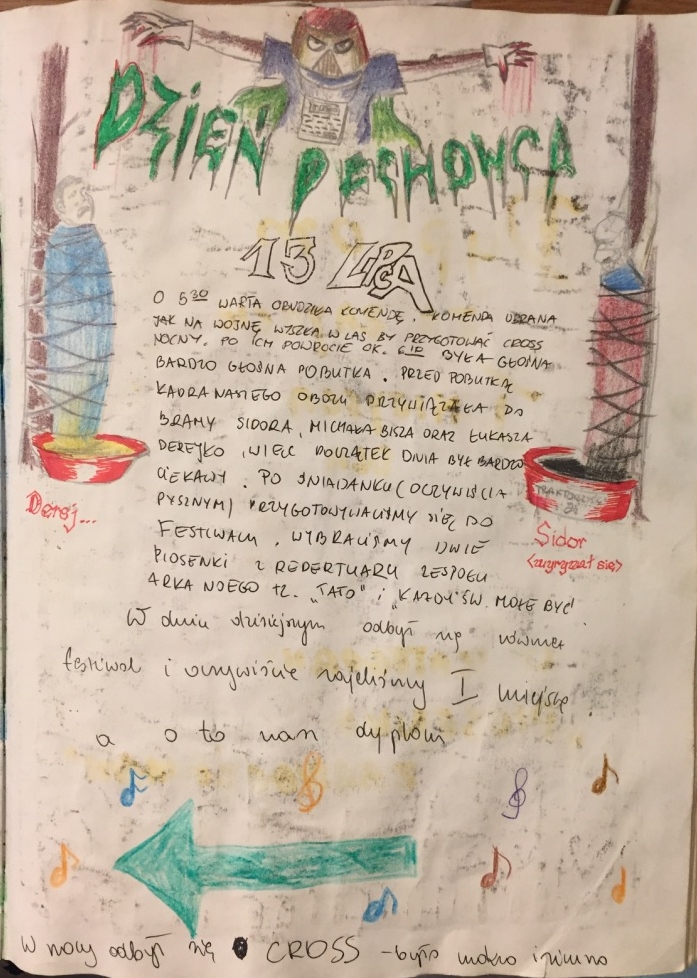 DZIEŃ PECHOWCA
13 LIPCA
O 5 30 WARTA OBUDZIŁA KOMENDĘ. KOMENDA UBRANA
JAK NA WOJNĘ WYSZŁA W LAS BY PRZYGOTOWAĆ CROSS
NOCNY. PO ICH POWROCIE OK. 6 10 BYŁA GŁOŚNA
BARDZO GŁOŚNA POBUTKA. PRZED POBUTKĄ
KADRA NASZEGO OBOZU PRZYWIĄZAŁA DO
BRAMY SIDORA, MICHAŁA BISZA ORAZ ŁUKASZA
DEREJKO, WIĘC POCZĄTEK DNIA BYŁ BARDZO
CIEKAWY. PO ŚNIADANKU (OCZYWIŚCIA
PYSZNYM) PRZYGOTOWYWALIŚMY SIĘ DO
FESTIWALU. WYBRALIŚMY DWIE
PIOSENKI Z REPERTUARU ZESPOŁU
ARKA NOEGO TZ. „TATO" i „KAŻDY ŚW. MOŻE BYĆ"
Derej...
Sidor
<zayryzał się>
W dniu dzisiejszym odbył się również
festiwal i oczywiście zajeliśmy I miejsce
a o to nasz dyplom
W nocy odbył się CROSS - było mokro i zimno